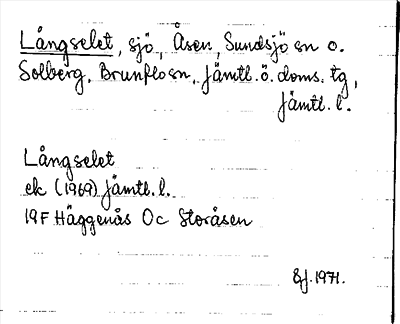 Långselet, sjö, Åsen, Sundsjö sn o.
Solberg, Brunflo sn, Jämtl. ö. doms. tg,
Jämtl. l.
Långselet
ek (1969) Jämtl. l.
19F Häggenås Oc Storåsen
1971.